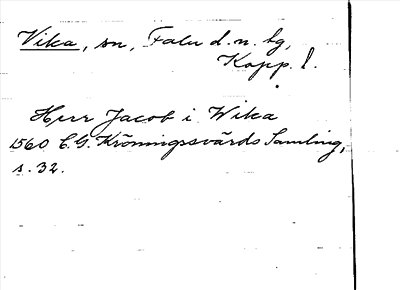 Vika, sn, Falu d.n. hg,
Kopp. l.
Herr Jacob i Wika
1560 C.G. Kröningsvärds Samling,
s. 32.